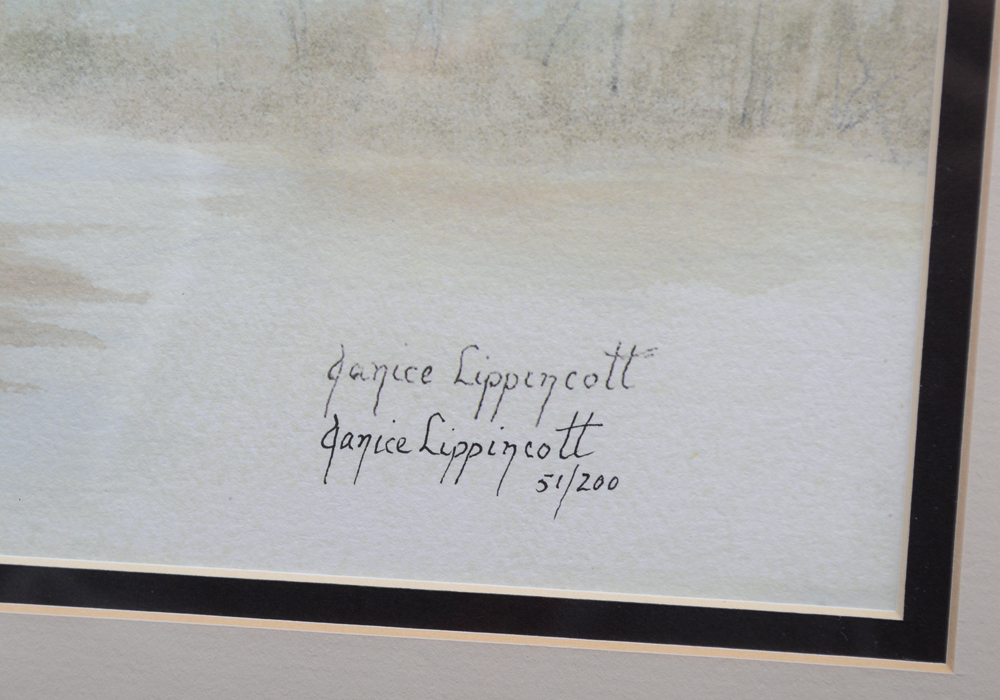 Janice Lippincott
Janice Lippincott
51/200